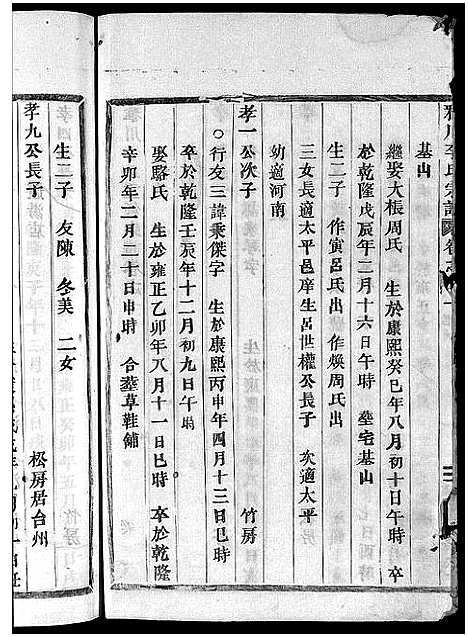 基山
繼娶大棖周氏 生於康熙癸巳年八月初十日午時 卒
於乾隆戊辰年三月十六日午時 塟宅基山
生二子 作寅呂氏出 作煥周氏出
三女長適太平邑庠生呂世權公長子 次適太平
幼適河南
孝一公次子 竹房
○行友三諱秉傑字 生於康熙丙申年四月十三日巳時
卒於乾隆壬辰年十二月初九日午時
娶駱氏 生於雍正乙卯年八月十一日巳時 卒於乾隆
辛卯年二月二十日申時 合塟草鞋鋪
生二子 友陳 冬美 二女
孝九公長子 松房居台州